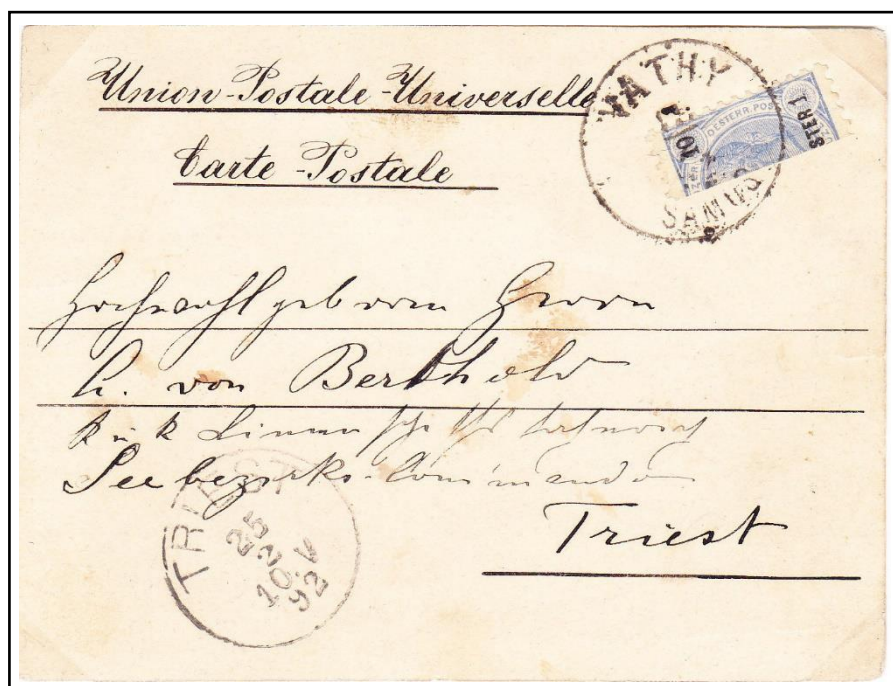 Union-Postale-Universelle
Carte-Postale
VATHY
SAMOS
OESTERR. POST
10
STER 1
Hochwohlgeboren Herrn
von Berthold
k u k
Seebezirks-Commando
Triest
TRIEST
25
2
10
92